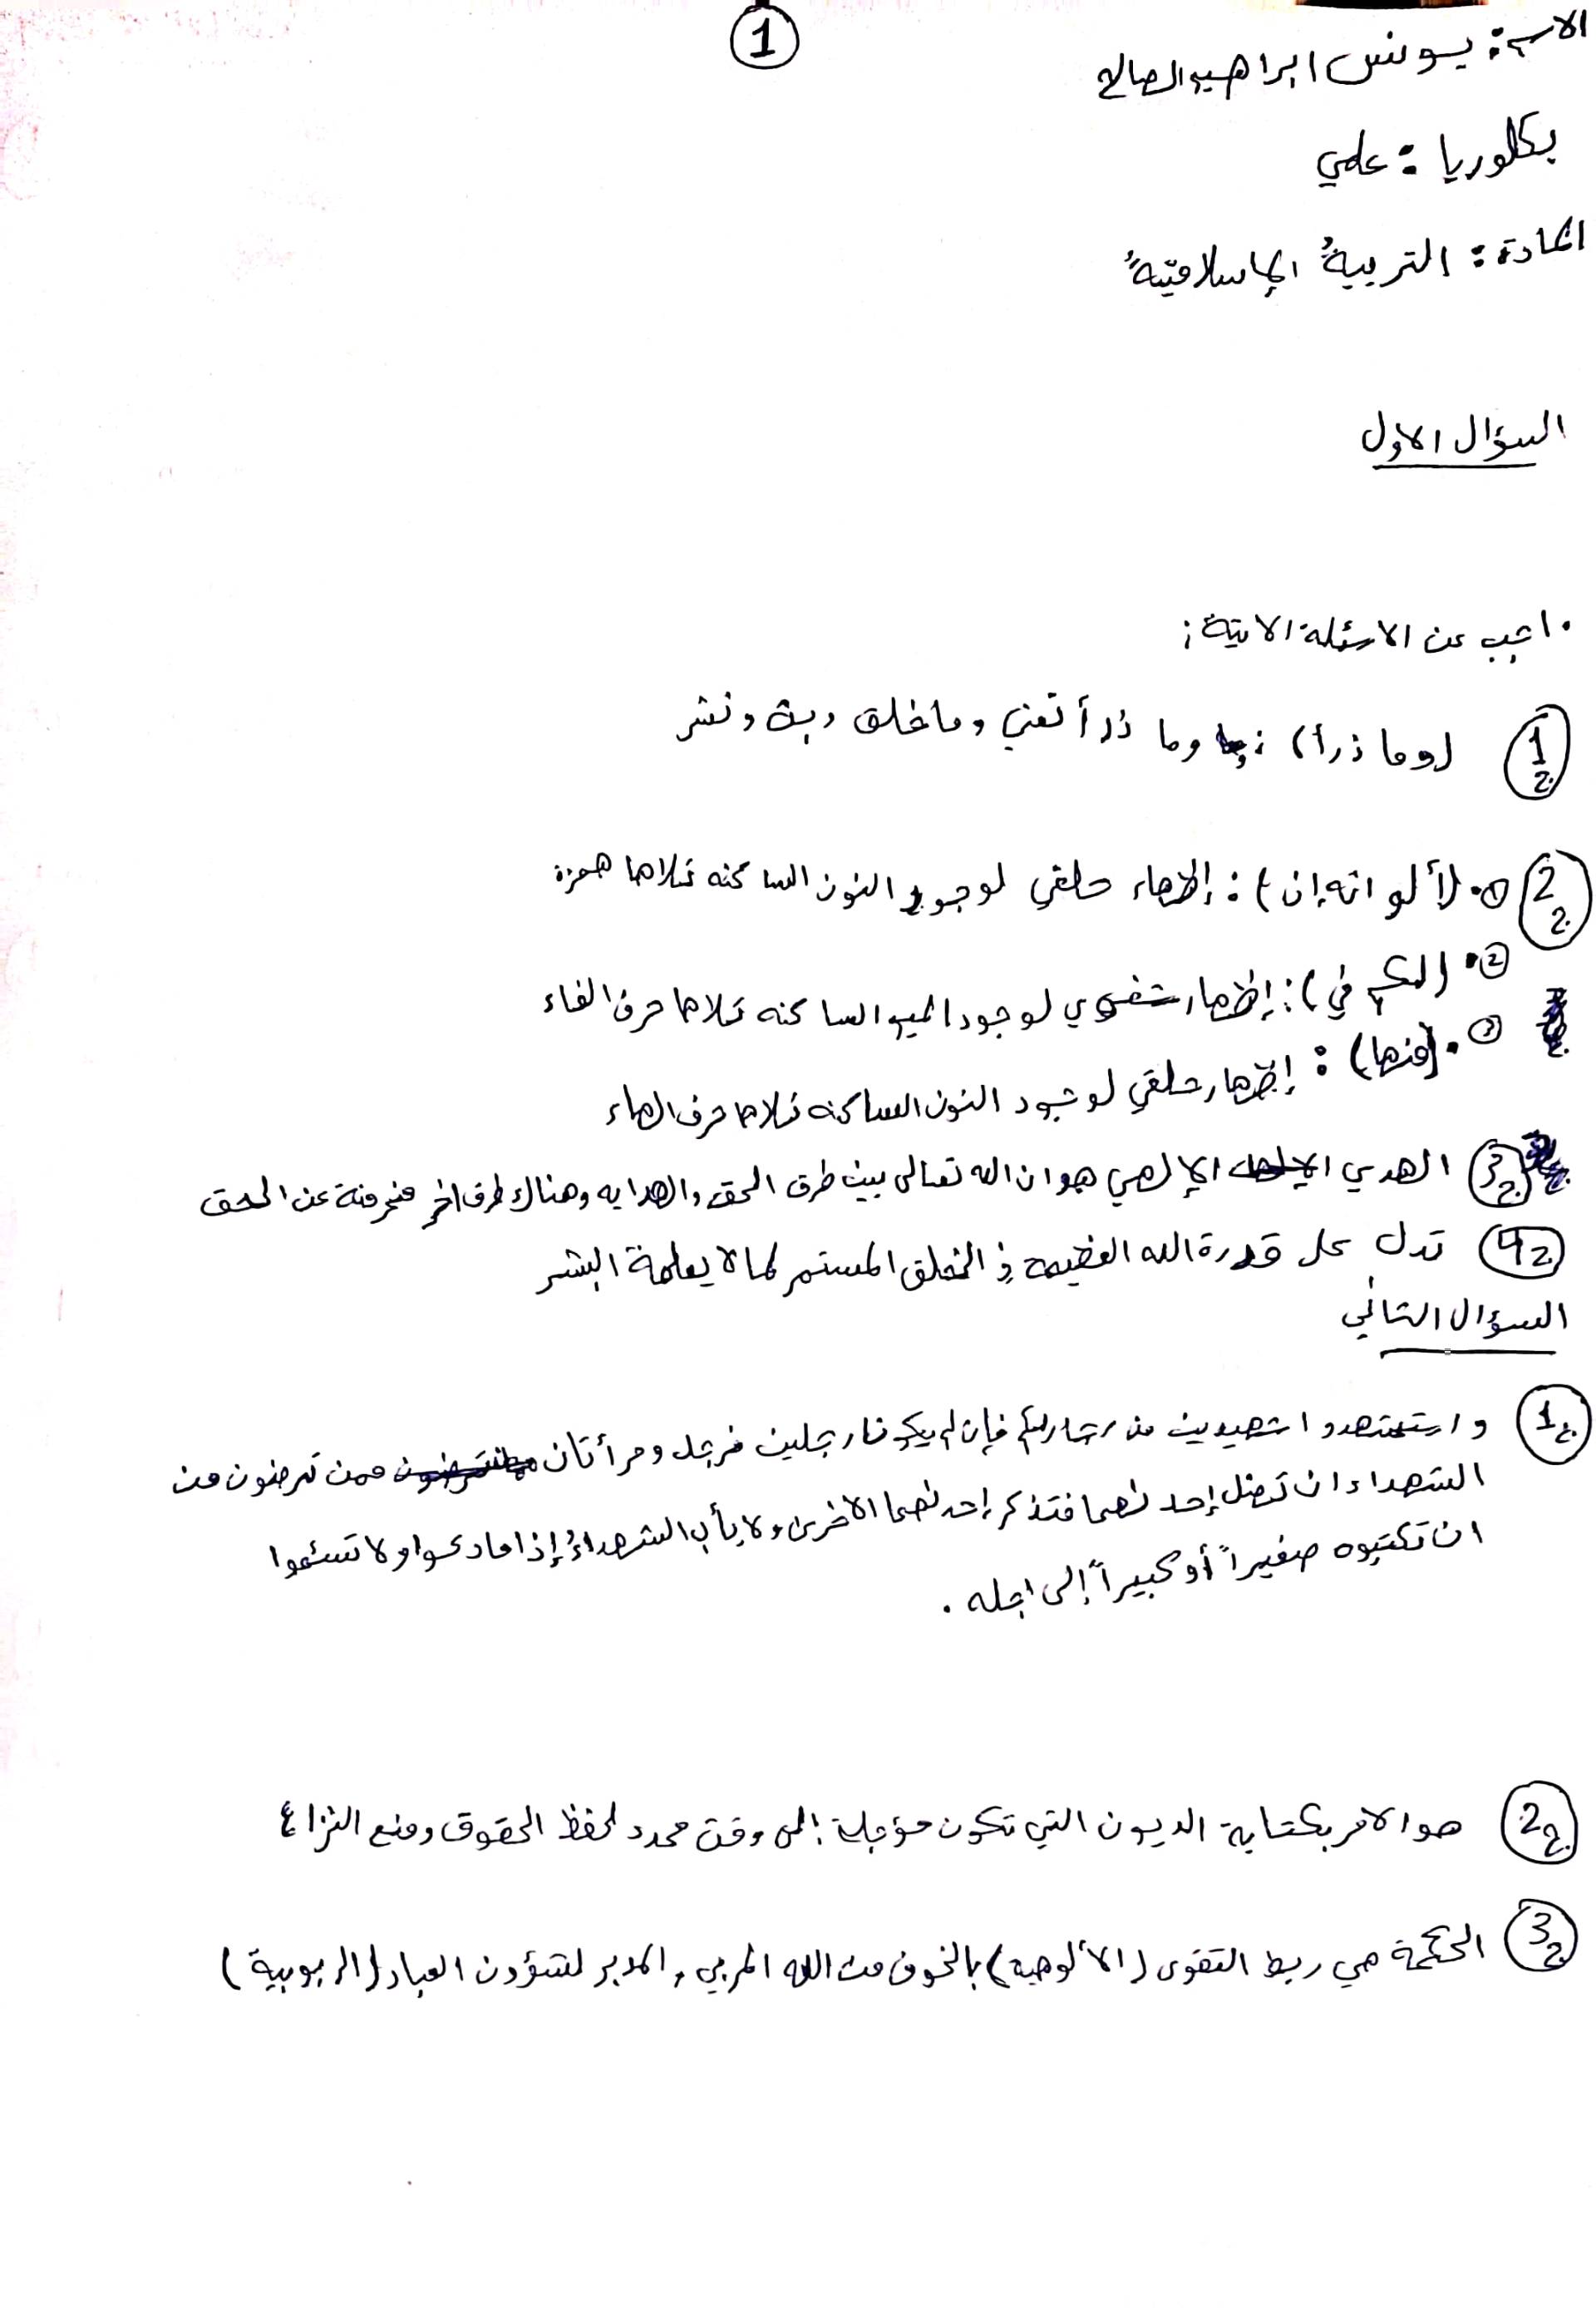 1
الاسم: يونس ابراهيم الصالح
بكلوريا: علمي
المادة: التربيةُ الإسلاميّةُ
السؤال الاول
. اجب عن الاسئلة الاتية:
1ج (وما ذرأ): وما ذرأ تعني وما خلق وبث ونشر
2ج ①. (ألوانه إن): إظهار حلقي لوجود النون الساكنه تلاها همزة
②. (لكم في): إظهار شفوي لوجود الميم الساكنه تلاها حرف الفاء
③. (منها): إظهار حلقي لوجود النون الساكنه تلاها حرف الهاء
3ج الهدي الإلهي هو ان الله تعالى بين طرق الحق والهدايه وهناك طرق اخر منحرفة عن الحق
4ج تدل على قدرة الله العظيمة في الخلق المستمر لما لا يعلمة البشر
السؤال الثاني
1ج واستشهدوا شهيدين من رجالكم فإن لم يكونا رجلين فرجل ومرأتان ممن ترضون من
الشهداء ان تضل إحدىهما فتذكر إحدىهما الاخرى ولا يأب الشهداءُ إذا ما دعوا ولا تسئموا
ان تكتبوه صغيراً أو كبيراً إلى اجله.
2ج هو الامر بكتابة الديون التي تكون مؤجلة إلى وقت محدد لحفظ الحقوق ومنع النزاع
3ج الحكمة هي ربط التقوى (الألوهية) بالخوف من الله المربي والمدبر لشؤون العباد (الربوبية)